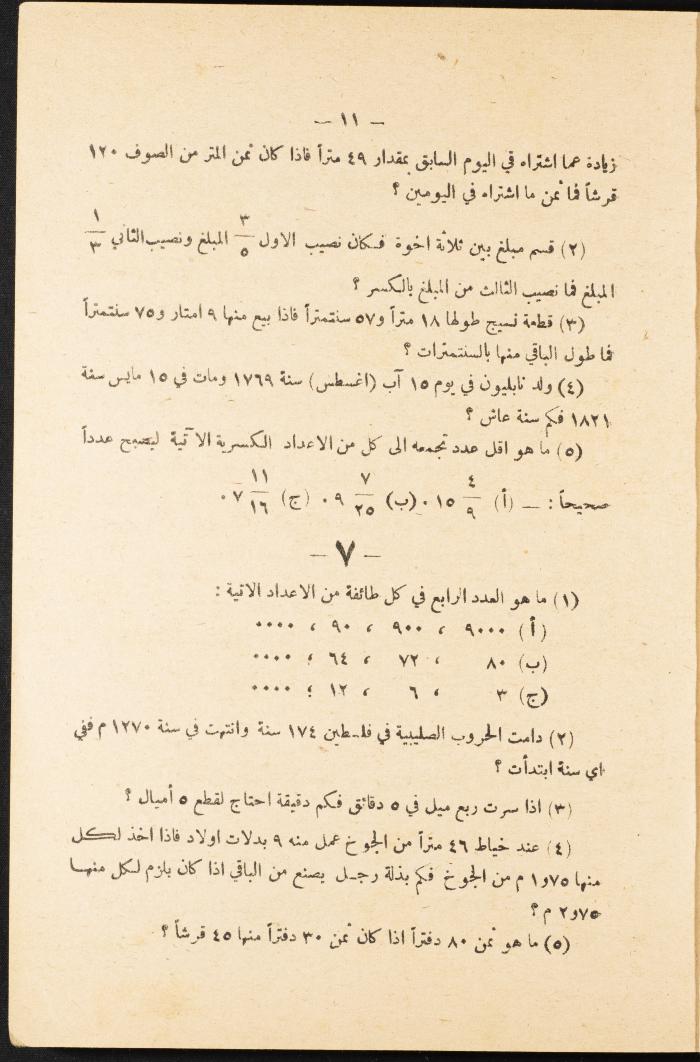 — ١١ —
زيادة عما اشتراه في اليوم السابق بمقدار ٤٩ متراً فاذا كان ثمن المتر من الصوف ١٢٠
قرشاً فما ثمن ما اشتراه في اليومين ؟
(٢) قسم مبلغ بين ثلاثة اخوة فكان نصيب الاول ٣/٥ المبلغ ونصيب الثاني ١/٣
المبلغ فما نصيب الثالث من المبلغ بالكسر ؟
(٣) قطعة نسيج طولها ١٨ متراً و٥٧ سنتمتراً فاذا بيع منها ٩ امتار و٧٥ سنتمتراً
فما طول الباقي منها بالسنتمترات ؟
(٤) ولد نابليون في يوم ١٥ آب (اغسطس) سنة ١٧٦٩ ومات في ١٥ مايس سنة
١٨٢١ فكم سنة عاش ؟
(٥) ما هو اقل عدد تجمعه الى كل من الاعداد الكسرية الآتية ليصبح عدداً
صحيحاً : — (أ) ٤/٩ ١٥ . (ب) ٧/٢٥ ٩ . (ج) ١١/١٦ ٧ .
— ٧ —
(١) ما هو العدد الرابع في كل طائفة من الاعداد الاتية :
(أ) ٩٠٠٠ ، ٩٠٠ ، ٩٠ ، ....
(ب) ٨٠ ، ٧٢ ، ٦٤ ، ....
(ج) ٣ ، ٦ ، ١٢ ، ....
(٢) دامت الحروب الصليبية في فلسطين ١٧٤ سنة وانتهت في سنة ١٢٧٠ م ففي
اي سنة ابتدأت ؟
(٣) اذا سرت ربع ميل في ٥ دقائق فكم دقيقة احتاج لقطع ٥ أميال ؟
(٤) عند خياط ٤٦ متراً من الجوخ عمل منه ٩ بدلات اولاد فاذا اخذ لكل
منها ٧٥و١ م من الجوخ فكم بذلة رجل يصنع من الباقي اذا كان يلزم لكل منها
٧٥و٢ م ؟
(٥) ما هو ثمن ٨٠ دفتراً اذا كان ثمن ٣٠ دفتراً منها ٤٥ قرشاً ؟